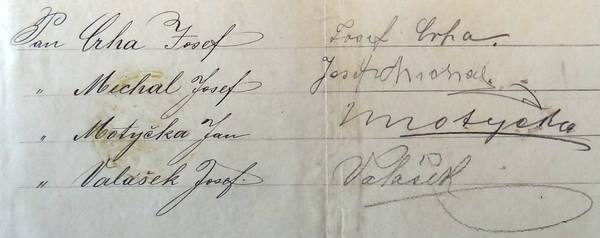 Pan Crha Josef Josef Crha.
„ Mechal Josef Josef
„ Motyčka Jan Motyčka
„ Valašek Josef. Valášek